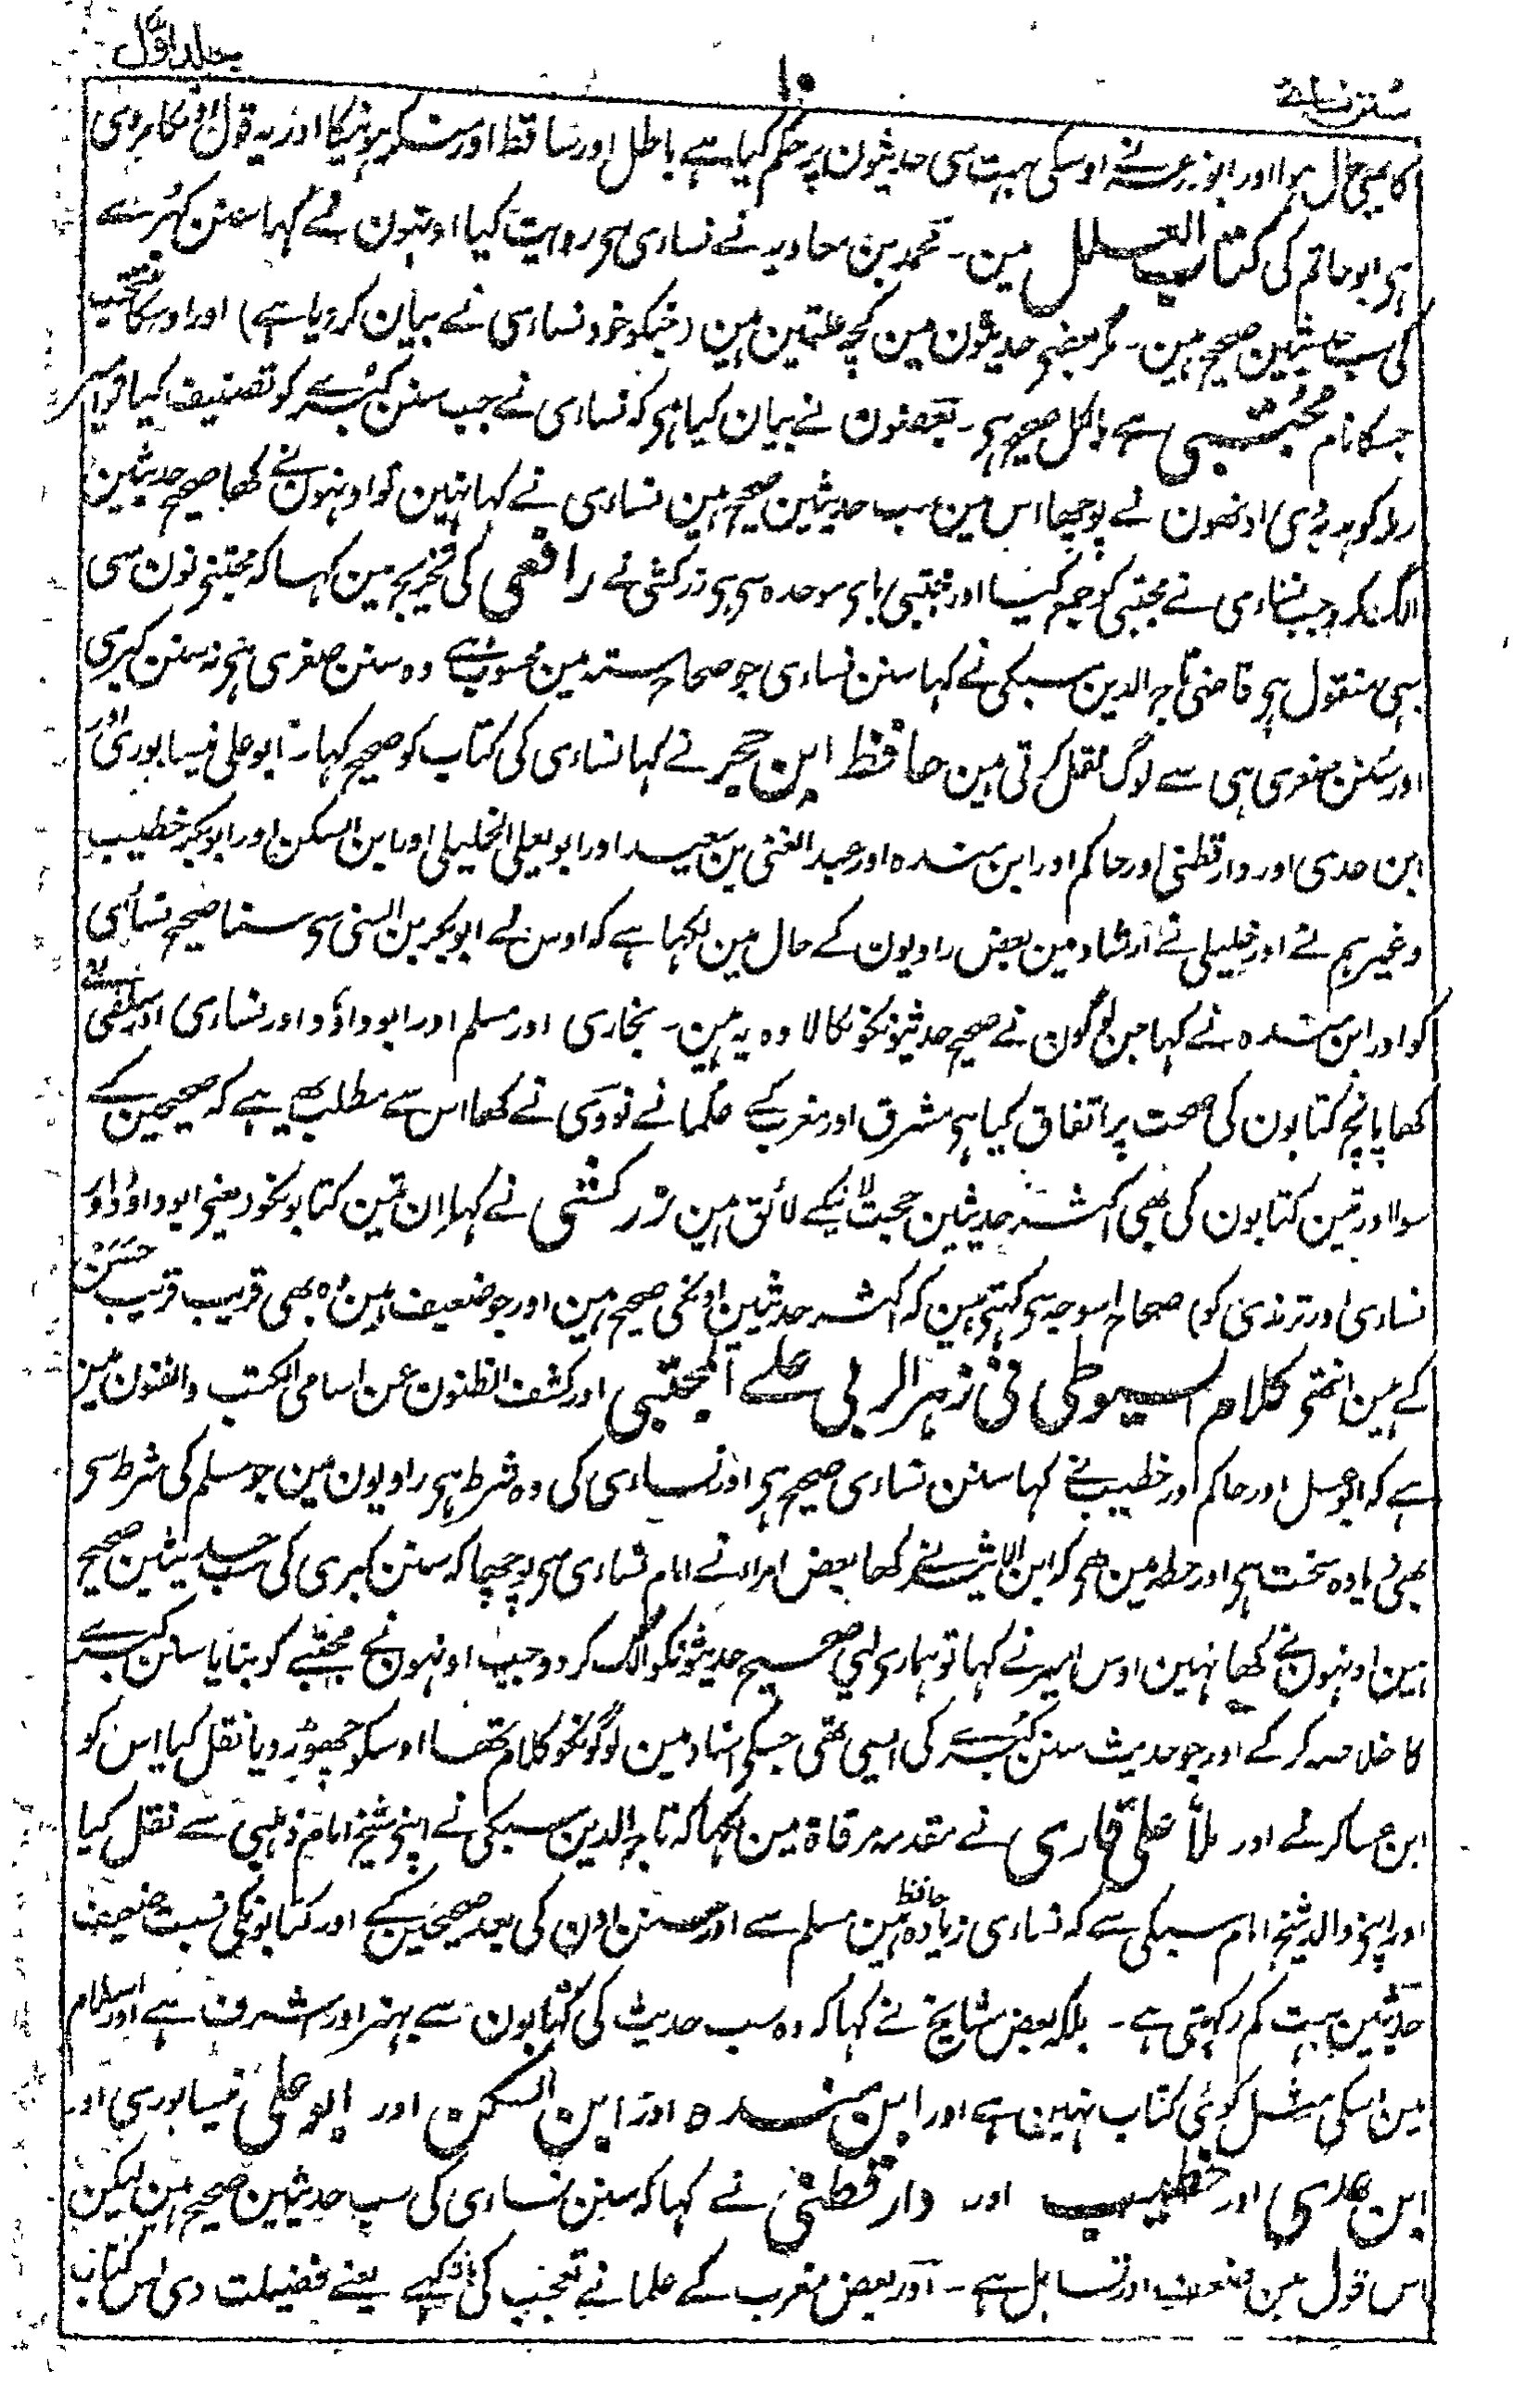 سنن نسائے
۱۰
جلد اوّل
کا یہی حال ہوا اور ابو زرعہ نے اوسکی بہت سی حدیثون پر حکم کیا ہے باطل اور ساقط اور منکر ہونیکا اور یہ قول اونکا مروی
ہی ابو حاتم کی کتاب العلل مین۔ محمد بن معاویہ نے نساءی سی روایت کیا اونہون نے کہا سنن کبرے
کی سب حدیثین صحیح ہین۔ مگر بعضی حدیثون مین کچہ علتین ہین (جنکو خود نساءی نے بیان کر دیا ہے) اور اوسکا منتخب
جسکا نام مجتبی ہے بالکل صحیح ہی۔ بعضون نے بیان کیا ہی کہ نساءی نے جب سنن کبرے کو تصنیف کیا تو امیر
رملہ کو ہدیہ دی اونھون نے پوچھا اس مین سب حدیثین صحیح ہین نساءی نے کہا نہین تو اونہون نے کھا صحیح حدیثین
الگ کر دو جب نساءی نے مجتبی کو جمع کیا اور مجتبی باءِ موحدہ سی ہی زرکشی نے رافعی کی تخریج مین کہا کہ مجتنی نون سی
بھی منقول ہی قاضی تاج الدین سبکی نے کہا سنن نساءی جو صحاح ستہ مین محسوب ہے وہ سنن صغری ہی نہ سنن کبری
اور سنن صغری ہی سے لوگ نقل کرتی ہین حافظ ابن حجر نے کہا نساءی کی کتاب کو صحیح کہا۔ ابو علی نیسابوری اور
ابن عدی اور دارقطنی اور حاکم اور ابن مندہ اور عبد الغنی بن سعید اور ابو یعلی الخلیلی اور ابن السکن اور ابو بکر خطیب
وغیرہم نے اور خلیلی نے ارشاد مین بعض راویون کے حال مین لکہا ہے کہ اوس نے ابو بکر بن السنی سی سنا صحیح نسائی
کو اور ابن مندہ نے کہا جن لوگون نے صحیح حدیثونکو نکالا وہ یہ ہین۔ بخاری اور مسلم اور ابو داؤد اور نساءی اور سلفی نے
کھا پانچ کتابون کی صحت پر اتفاق کیا ہی مشرق اور مغرب کے علمانے نووی نے کھا اس سے مطلب یہ ہے کہ صحیحین کے
سوا اور تین کتابون کی بھی اکثر حدیثین حجت لانیکے لائق ہین زرکشی نے کہا ان تین کتابونکو (یعنی ابو داؤد اور
نساءی اور ترمذی کو) صحاح اسوجہ سی کہتی ہین کہ اکثر حدیثین اونکی صحیح ہین اور جو ضعیف ہین وہ بھی قریب قریب حسن
کے ہین انتھی کلام السیوطی فی زہر الربی علے المجتبی اور کشف الظنون عن اسامی الکتب والفنون مین
ہے کہ ابو علی اور حاکم اور خطیب نے کہا سنن نساءی صحیح ہی اور نساءی کی وہ شرط ہی راویون مین جو مسلم کی شرط سی
بھی زیادہ سخت ہی اور حطہ مین ہی کہ ابن الاثیر نے کھا بعض امرا نے امام نساءی سی پوچھا کہ سنن کبری کی سب حدیثین صحیح
ہین اونہون نے کھا نہین اوس امیر نے کہا تو ہماری لیی صحیح حدیثونکو الگ کر دو جب اونہون نے مجتبے کو بنایا سنن کبرے
کا خلاصہ کر کے اور جو حدیث سنن کبرے کی ایسی تھی جسکی اسناد مین لوگونکو کلام تھا اوسکو چھوڑ دیا نقل کیا اس کو
ابن عساکر نے اور ملا علی قاری نے مقدمہ مرقاۃ مین لکھا کہ تاج الدین سبکی نے اپنی شیخ امام ذہبی سے نقل کیا
اور اپنی والد شیخ امام سبکی سے کہ نساءی زیادہ حافظ ہین مسلم سے اور سنن اون کی بعد صحیحین کے اور کتابونکی نسبت ضعیف
حدیثین بہت کم رکہتی ہے۔ بلکہ بعض مشایخ نے کہا کہ وہ سب حدیث کی کتابون سے بہتر اور اشرف ہے اور اسلام
مین اسکی مثل کوئی کتاب نہین ہے اور ابن مندہ اور ابن السکن اور ابو علی نیسابوری اور
ابن عدی اور خطیب اور دارقطنی نے کہا کہ سنن نساءی کی سب حدیثین صحیح ہین لیکن
اس قول مین ضعف اور تساہل ہے۔ اور بعض مغرب کے علمانے تعجب کی بات کہی یعنے فضیلت دی اس کتاب